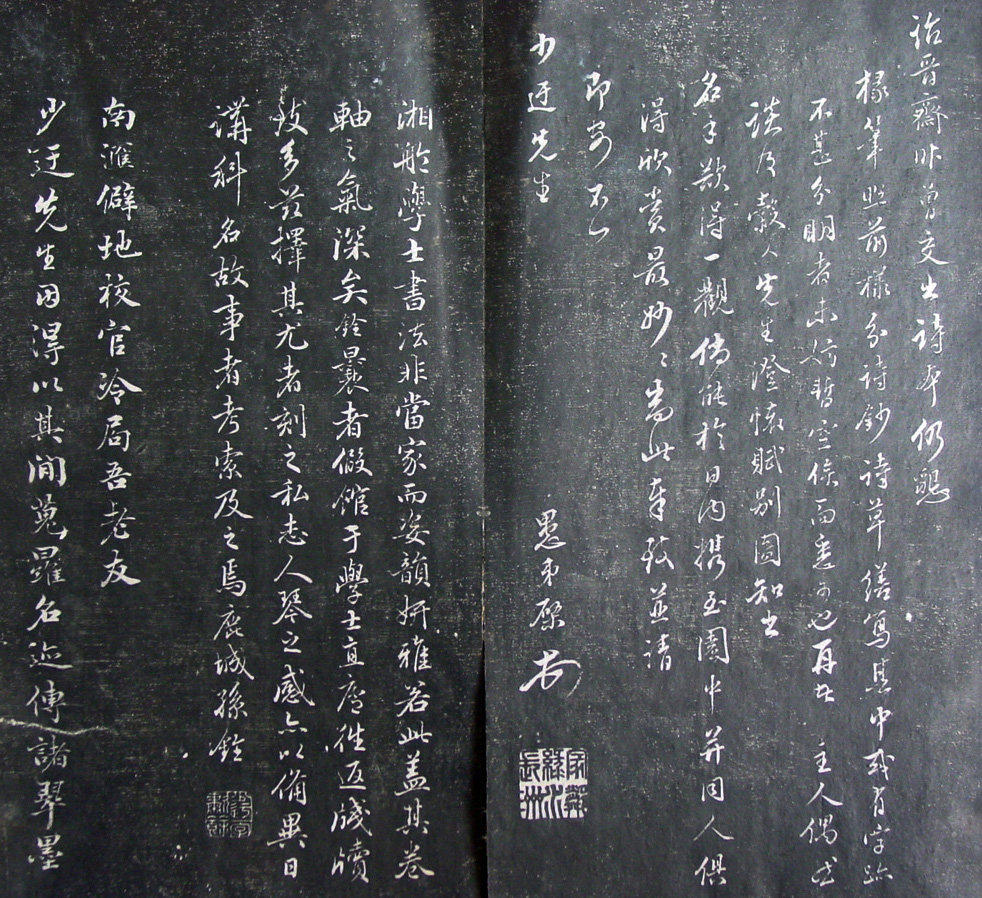 詒晉齋昨曾交出詩本仍懇
椽筆照前樣分詩鈔詩草繕寫其中或有字跡
不甚分明者未妨暫空條而悉可也再者 主人偶患
談及穀人先生澄懷賦別圖知出
名手欲得一觀倘能於日內攜至園中并同人俱
得欣賞最妙〻耑此奉致並請
即安不一
少迂先生
愚弟 頓首
湘舲學士書法非當家而姿韻妍雅若此蓋其卷
軸之氣深矣銓曩者假館于學士直廬往返牋牘
頗多茲擇其尤者刻之私志人琴之感亦以備異日
講科名故事者考索及之焉鹿城孫銓
南滙僻地校官冷局吾老友
少迂先生因得以其閒蒐羅名迹傳諸翠墨